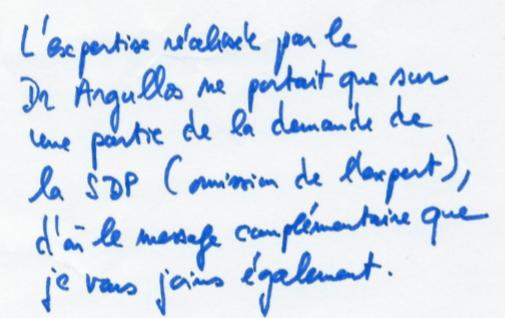 L'expertise réalisée par le
Dr Argullos ne portait que sur
une partie de la demande de
la SDP (omission de l'expert),
d'où le message complémentaire que
je vous joins également.